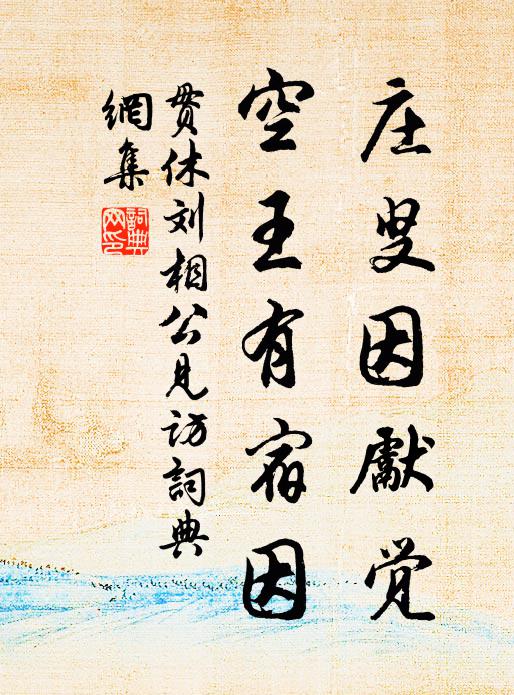 庄叟因獻觉
空王有宿因
贯休刘相公见访詞典
網集
詞典
网印